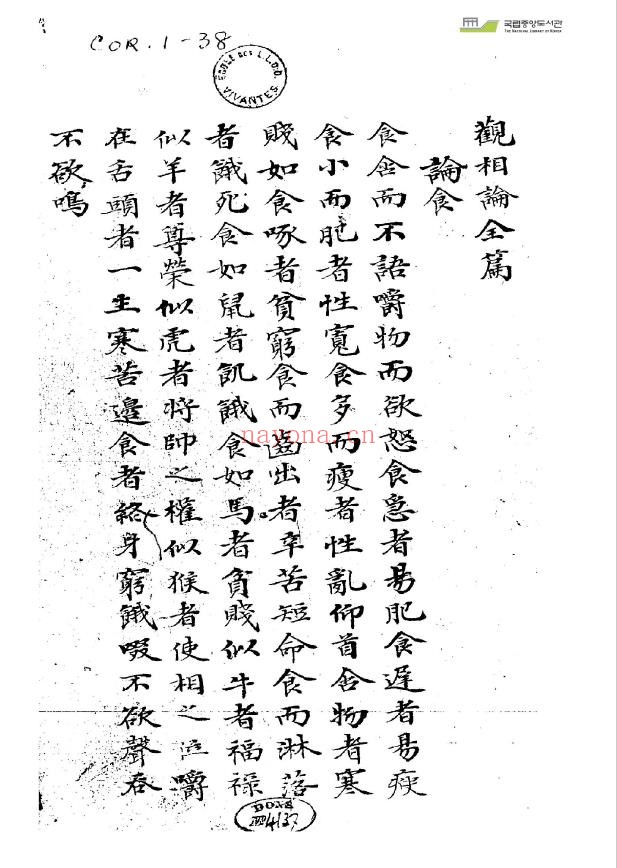 COR. 1-38
국립중앙도서관
THE NATIONAL LIBRARY OF KOREA
ECOLE DES L.L.O.O. VIVANTES
觀相論全篇
論食
食含而不語嚼物而欲怒食急者易肥食遅者易瘦
食小而肥者性寬食多而瘦者性亂仰首含物者寒
賤如食啄者貧窮食而齒出者辛苦短命食而淋落
者餓死食如鼠者飢餓食如馬者貧賤似牛者福禄
似羊者尊榮似虎者将帥之權似猴者使相之位嚼
在舌頭者一生寒苦邉食者終身窮餓啜不欲聲吞
不欲鳴
nayona.cn
DONS
4137